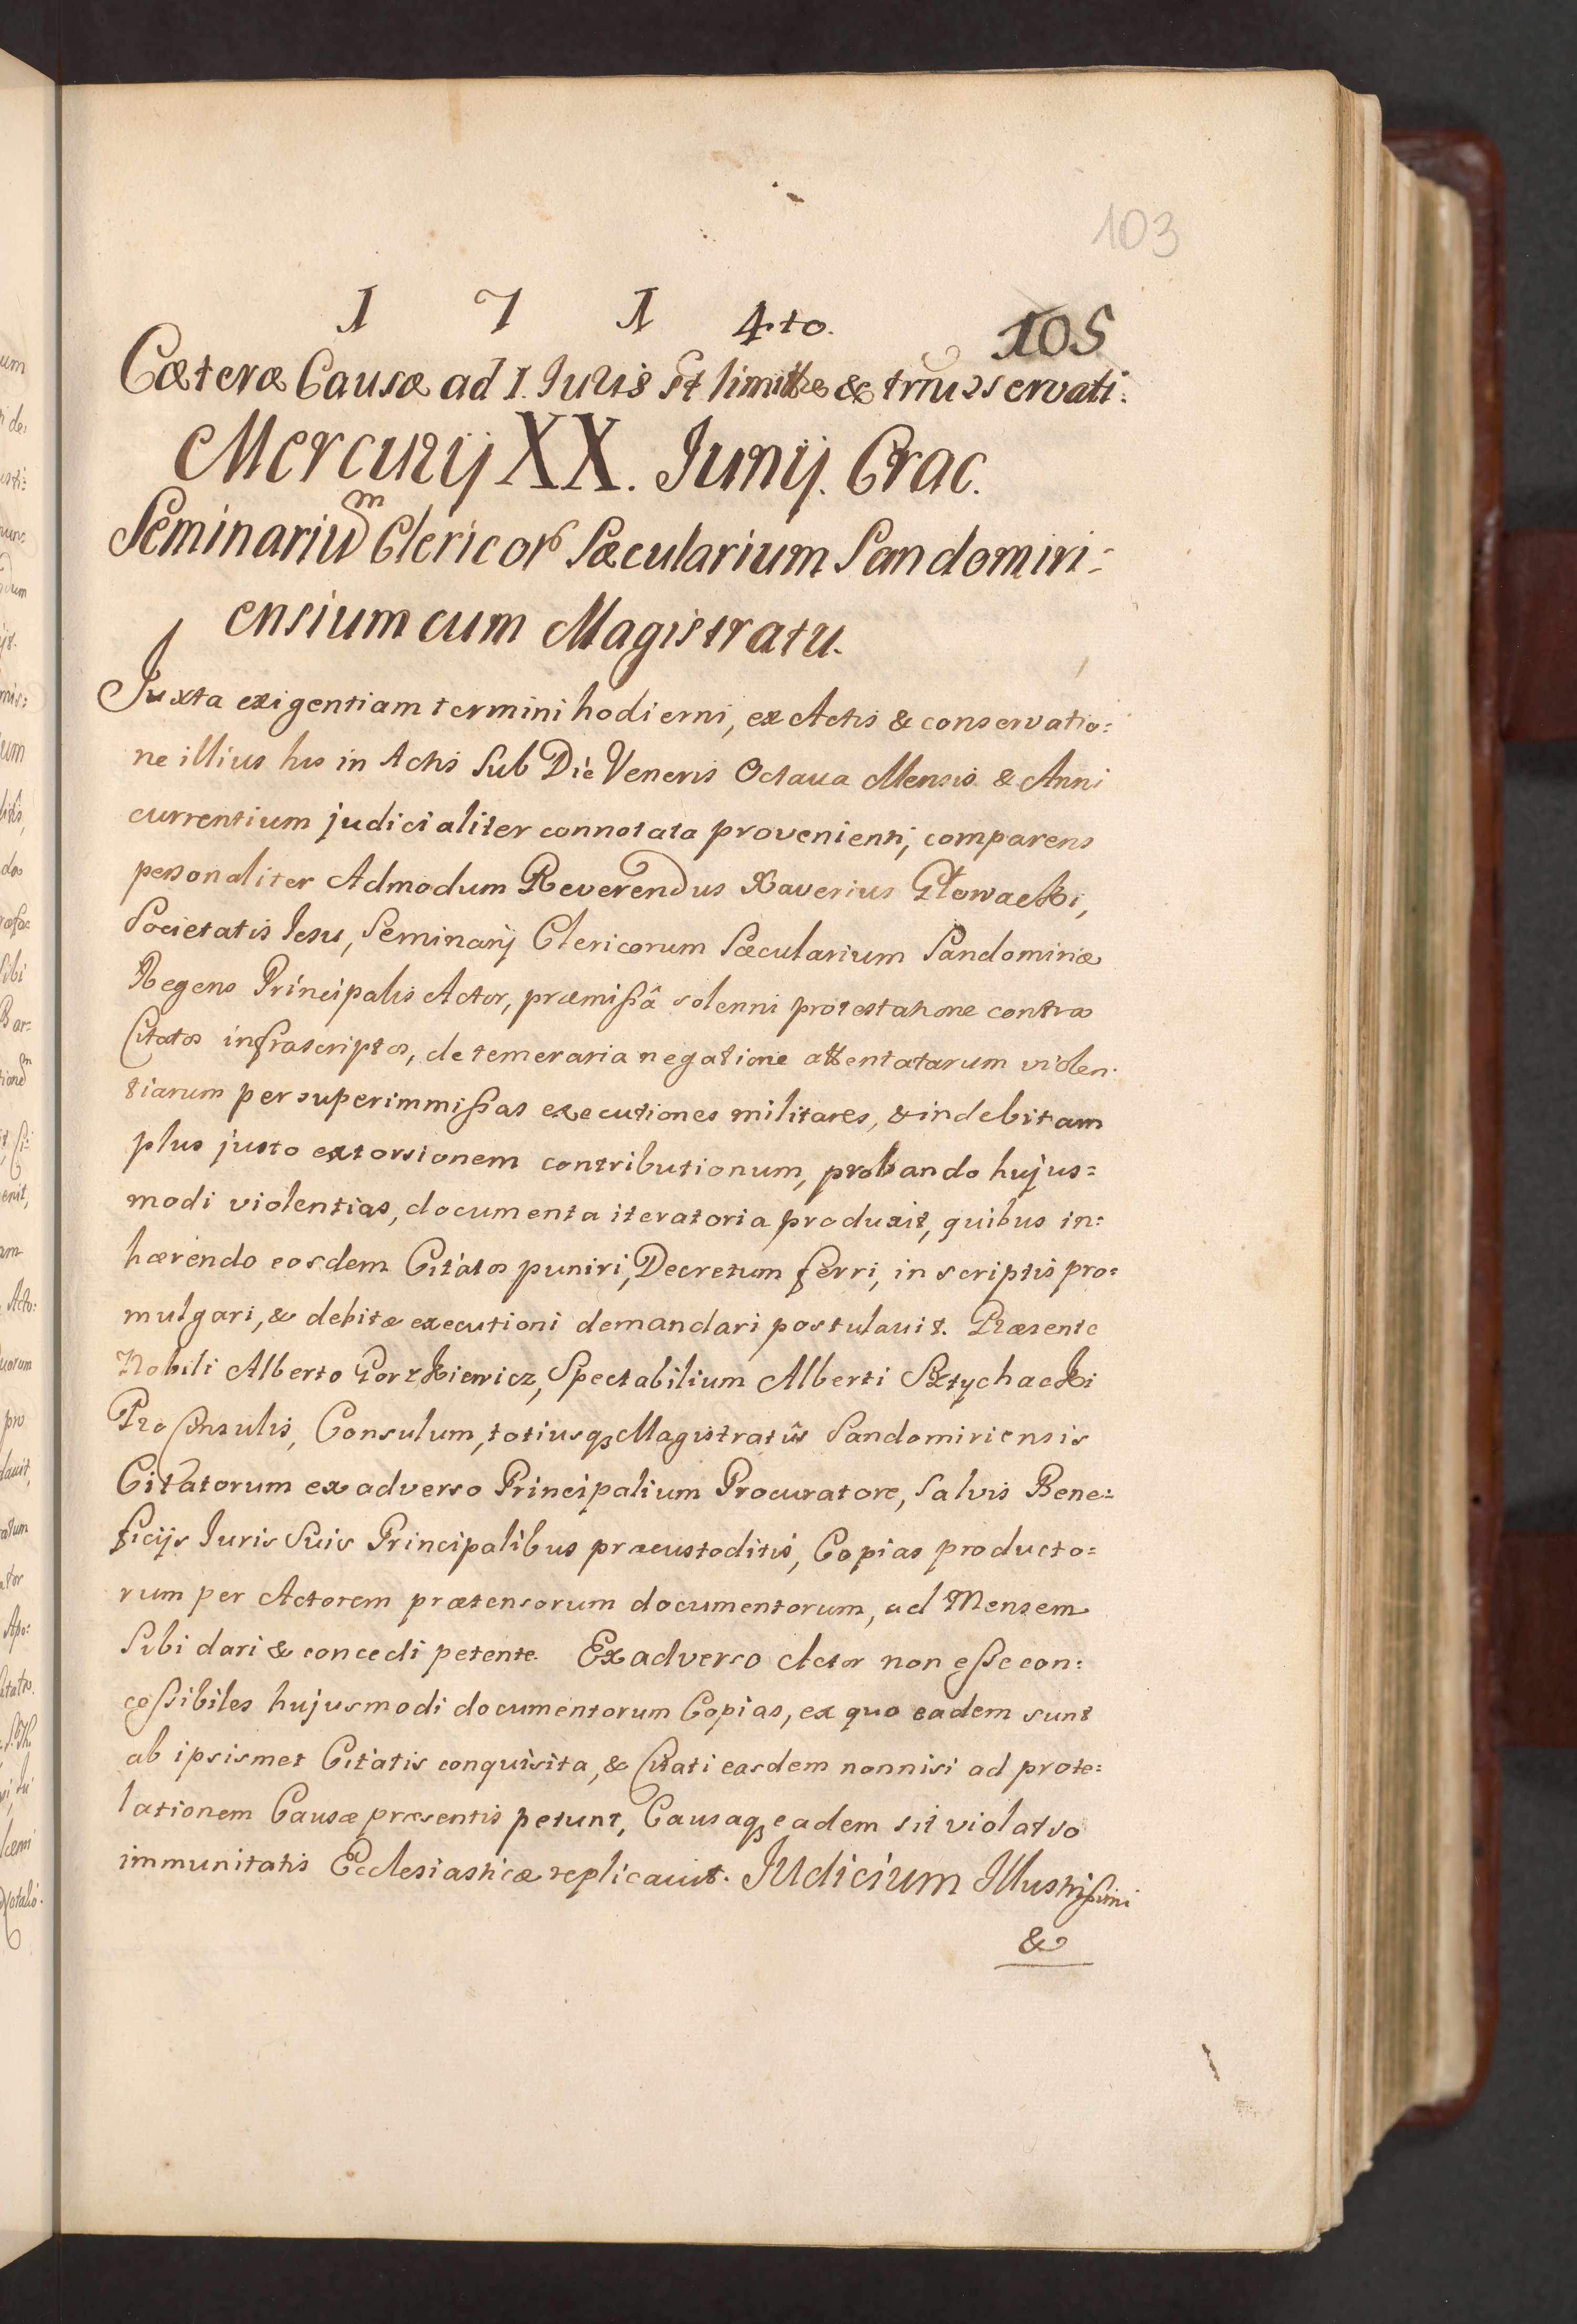 103
1 7 1 4to. 105
Cæteræ Causæ ad I. Juris st limitæ & trnı servati:
Mercurij XX. Junij. Crac.
Seminariu͞m Clericor Sæcularium Sandomiri:
ensium cum Magistratu.
Juxta exigentiam termini hodierni, ex Actis & conservatio:
ne illius his in Actis Sub Die Veneris Octava Mensis & Anni
currentium judicialiter connotata provenienti, comparens
personaliter Admodum Reverendus Xaverius Głowacki,
Societatis Iesu, Seminarij Clericorum Sæcularium Sandomiriæ
Regens Principalis Actor, præmißâ solenni protestatione contra
Citatos infrascriptos, de temeraria negatione attentatarum violen:
tiarum per superimmißas executiones militares, & indebitam
plus justo extorsionem contributionum, probando hujus=
modi violentias, documenta iteratoria produxit, quibus in:
hærendo eosdem Citatos puniri, Decretum ferri, in scriptis pro=
mulgari, & debitæ executioni demandari postulavit. Præsente
Nobili Alberto Gorzkiewicz, Spectabilium Alberti Sztychacki
Pro Consulis, Consulum, totiusq; Magistratûs Sandomiriensis
Citatorum ex adverso Principalium Procuratore, Salvis Bene:
ficijs Juris Suis Principalibus præcustoditis, Copias producto=
rum per Actorem prætensorum documentorum, ad Mensem
Sibi dari & concedi petente. Ex adverso Actor non eße con:
ceßibiles hujusmodi documentorum Copias, ex quo eadem sunt
ab ipsismet Citatis conquisita, & Citati easdem nonnisi ad prote:
lationem Causæ præsentis petunt, Causaq; eadem sit violatio
immunitatis Ecclesiasticæ replicavit. Judicium Illustrißimi
&